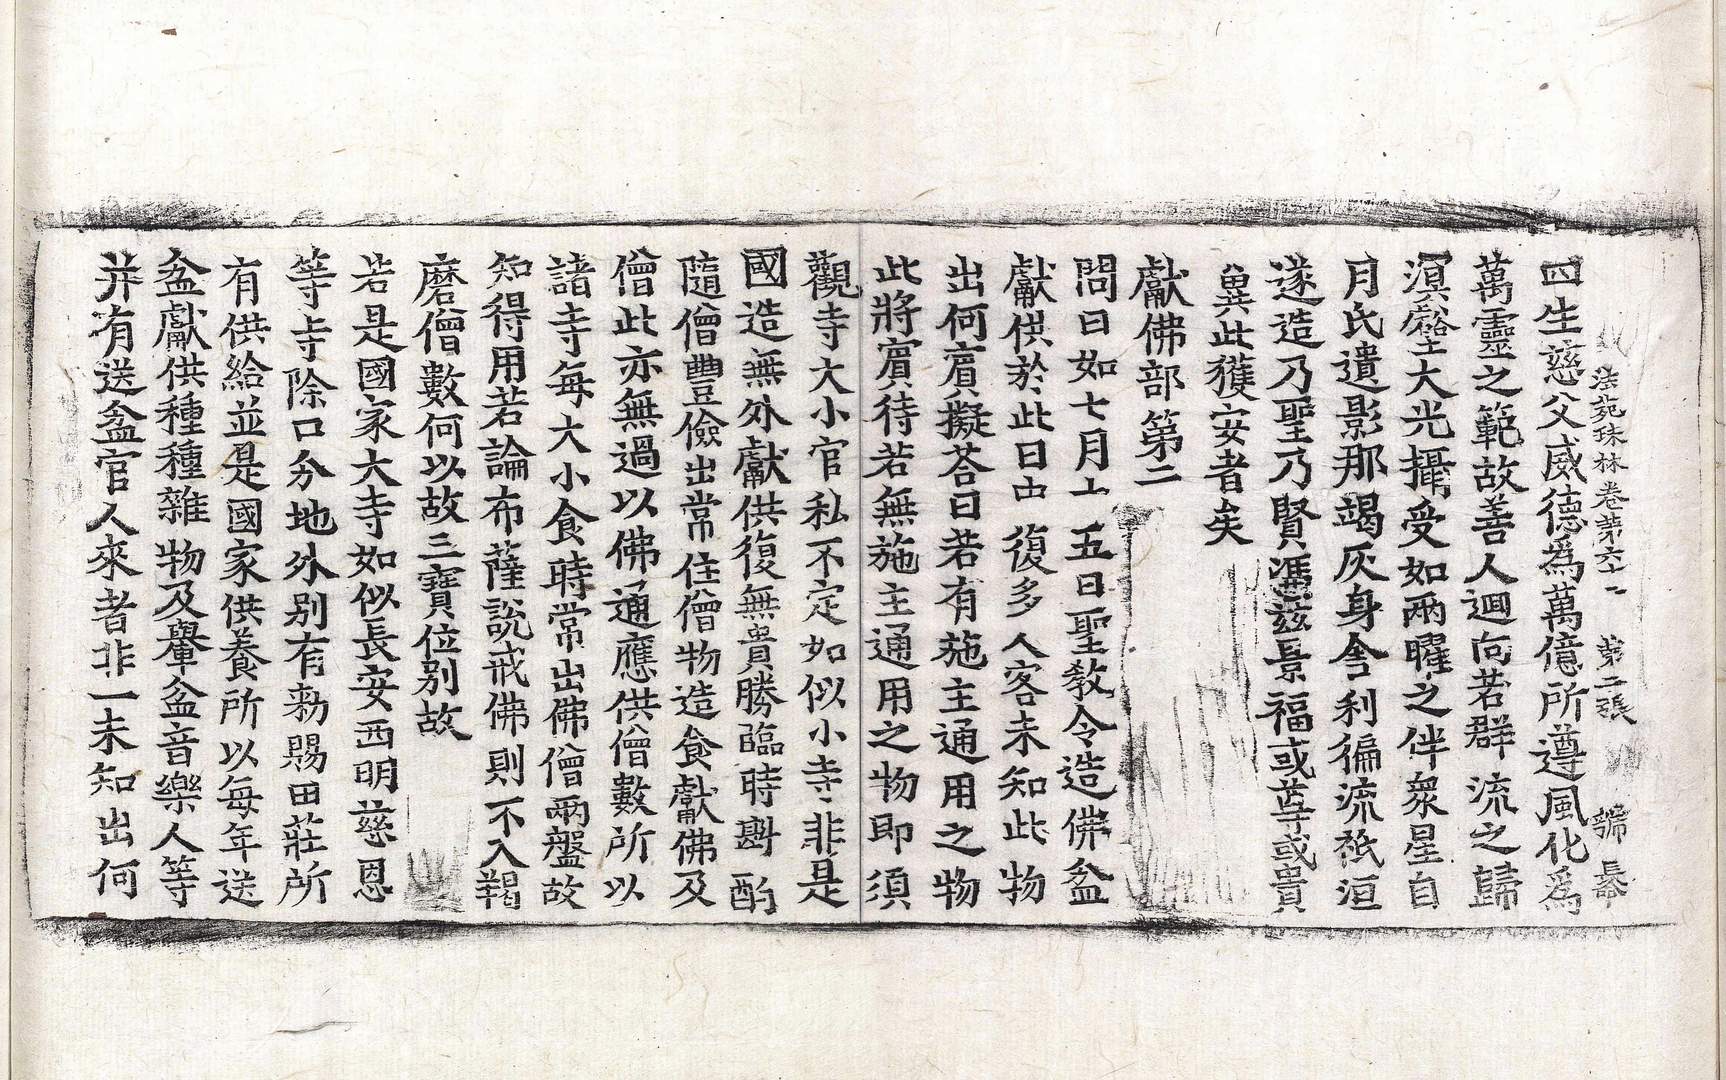 法苑珠林卷第六十二 第二張 號
四生慈父威德為萬億所遵風化為
萬靈之範故善人迴向若群流之歸
溟壑大光攝受如兩曜之伴衆星自
月氏遺影那竭灰身舍利徧流祇洹
遂造乃聖乃賢憑茲景福或尊或貴
冀此獲安者矣
獻佛部第二
問曰如七月十五日聖教令造佛盆
獻供於此日中復多人客未知此物
出何賓擬荅曰若有施主通用之物
此將賓待若無施主通用之物即須
觀寺大小官私不定如似小寺非是
國造無外獻供復無貴勝臨時斟酌
隨僧豐儉出常住僧物造食獻佛及
僧此亦無過以佛通應供僧數所以
諸寺每大小食時常出佛僧兩盤故
知得用若論布薩說戒佛則不入羯
磨僧數何以故三寶位別故
若是國家大寺如似長安西明慈恩
等寺除口分地外別有勑賜田莊所
有供給並是國家供養所以每年送
盆獻供種種雜物及轝盆音樂人等
并有送盆官人來者非一未知出何